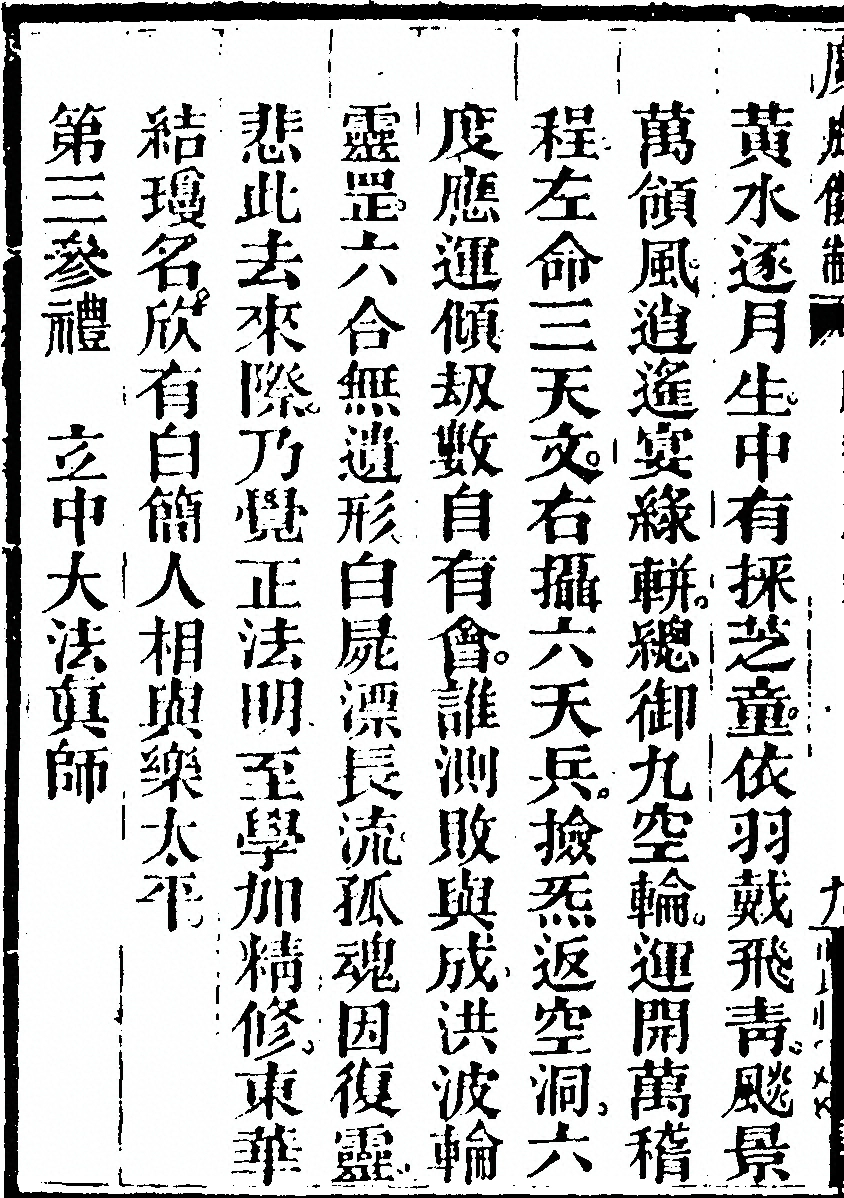 黃水逐月生中有採芝童依羽戴飛青飈景
萬領風逍遙宴綠軿總御九空輪運開萬稽
程左命三天文右攝六天兵撿炁返空洞六
度應運傾刼數自有會誰測敗與成洪波輪
靈罡六合無遺形白屍漂長流孤魂因復靈
悲此去來際乃覺正法明至學加精修東華
結瓊名欣有白簡人相與樂太平
第三參禮　立中大法眞師